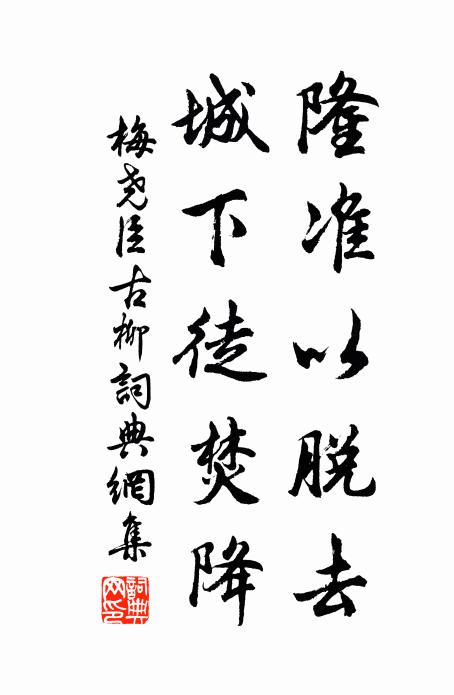 隆准以脱去
城下徒焚降
梅尧臣古柳詞典網集
詞典网印